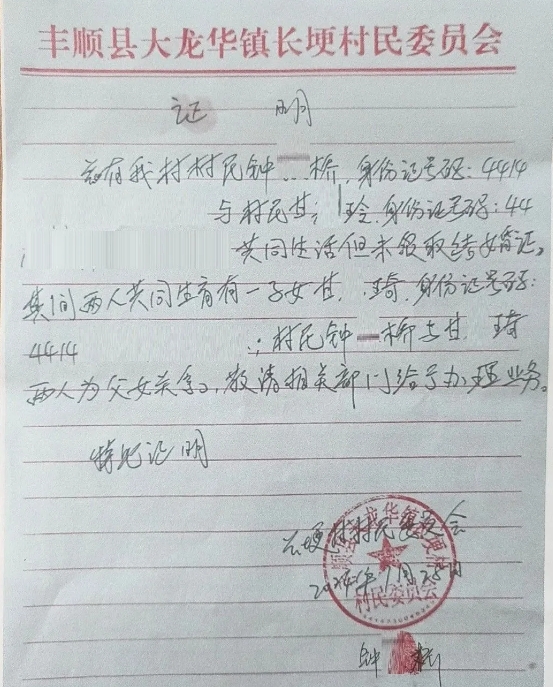 丰顺县大龙华镇长埂村民委员会
证 明
兹有我村村民钟 桥,身份证号码:4414
与村民甘 玲,身份证号码:44
共同生活但未领取结婚证。
其间两人共同生育有一子女甘 琦,身份证号码:
4414 村民钟 桥与甘 琦
两人为父女关系,敬请相关部门给予办理业务。
特此证明
长埂村村民委员会
年1月25日
丰顺县大龙华镇长埂村
村民委员会
钟 桥